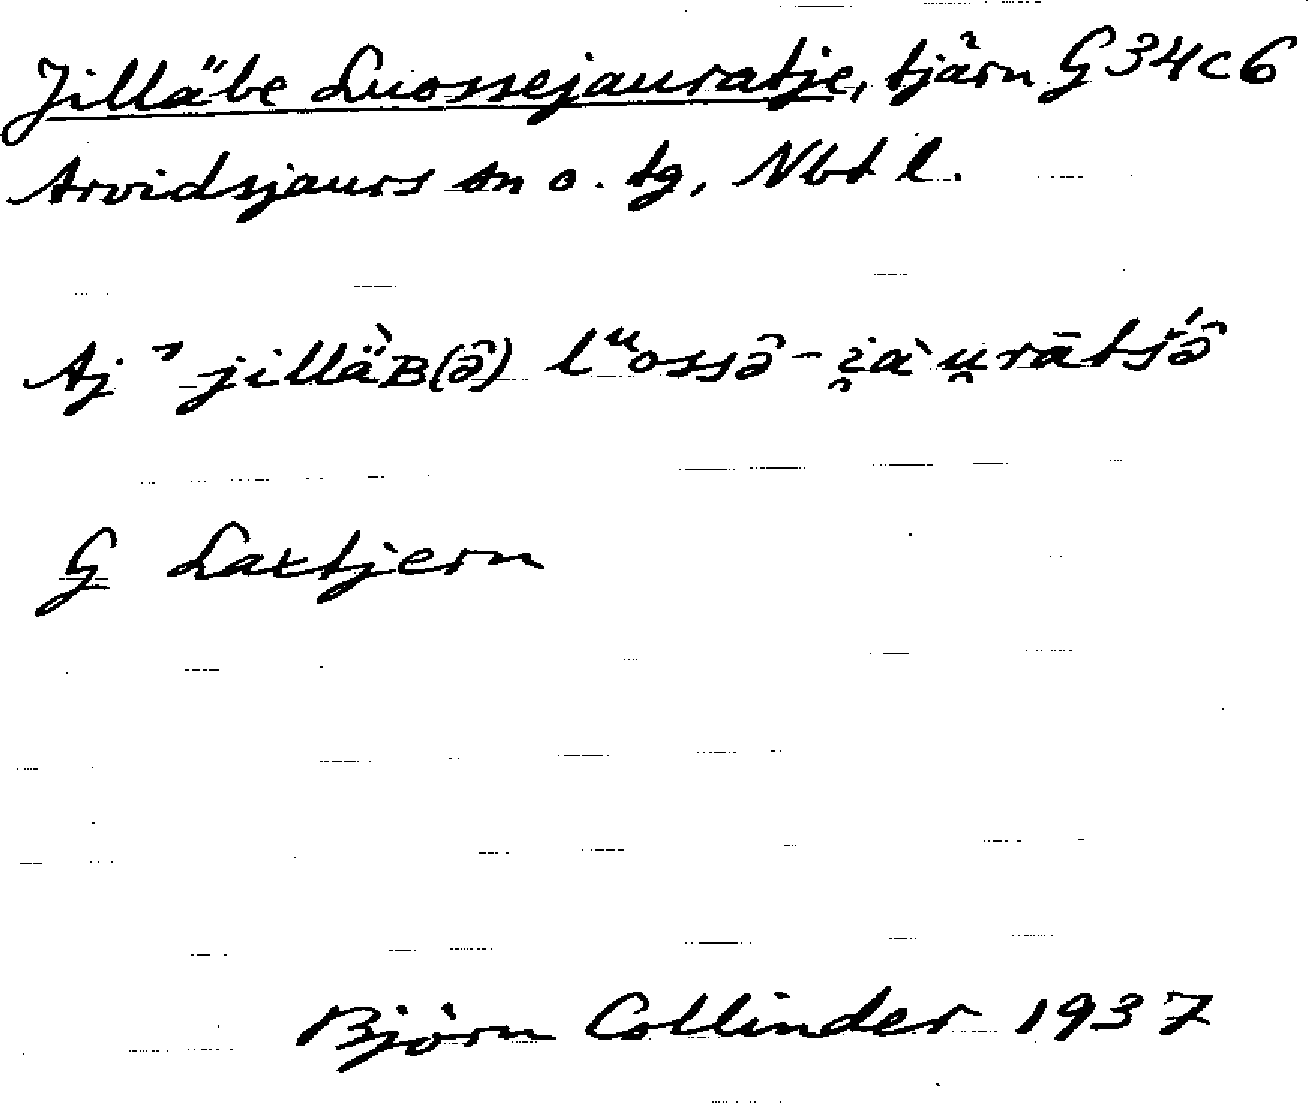 Jilläbe Luossejauratje, tjärn G 34c6
Arvidsjaurs sn o. tg, Nbt l.
Aj ⁓ jillä̀B(ə̂) lᵘossə̂-i̯àu̯rātś̌ə̂
G Laxtjern
Björn Collinder 1937